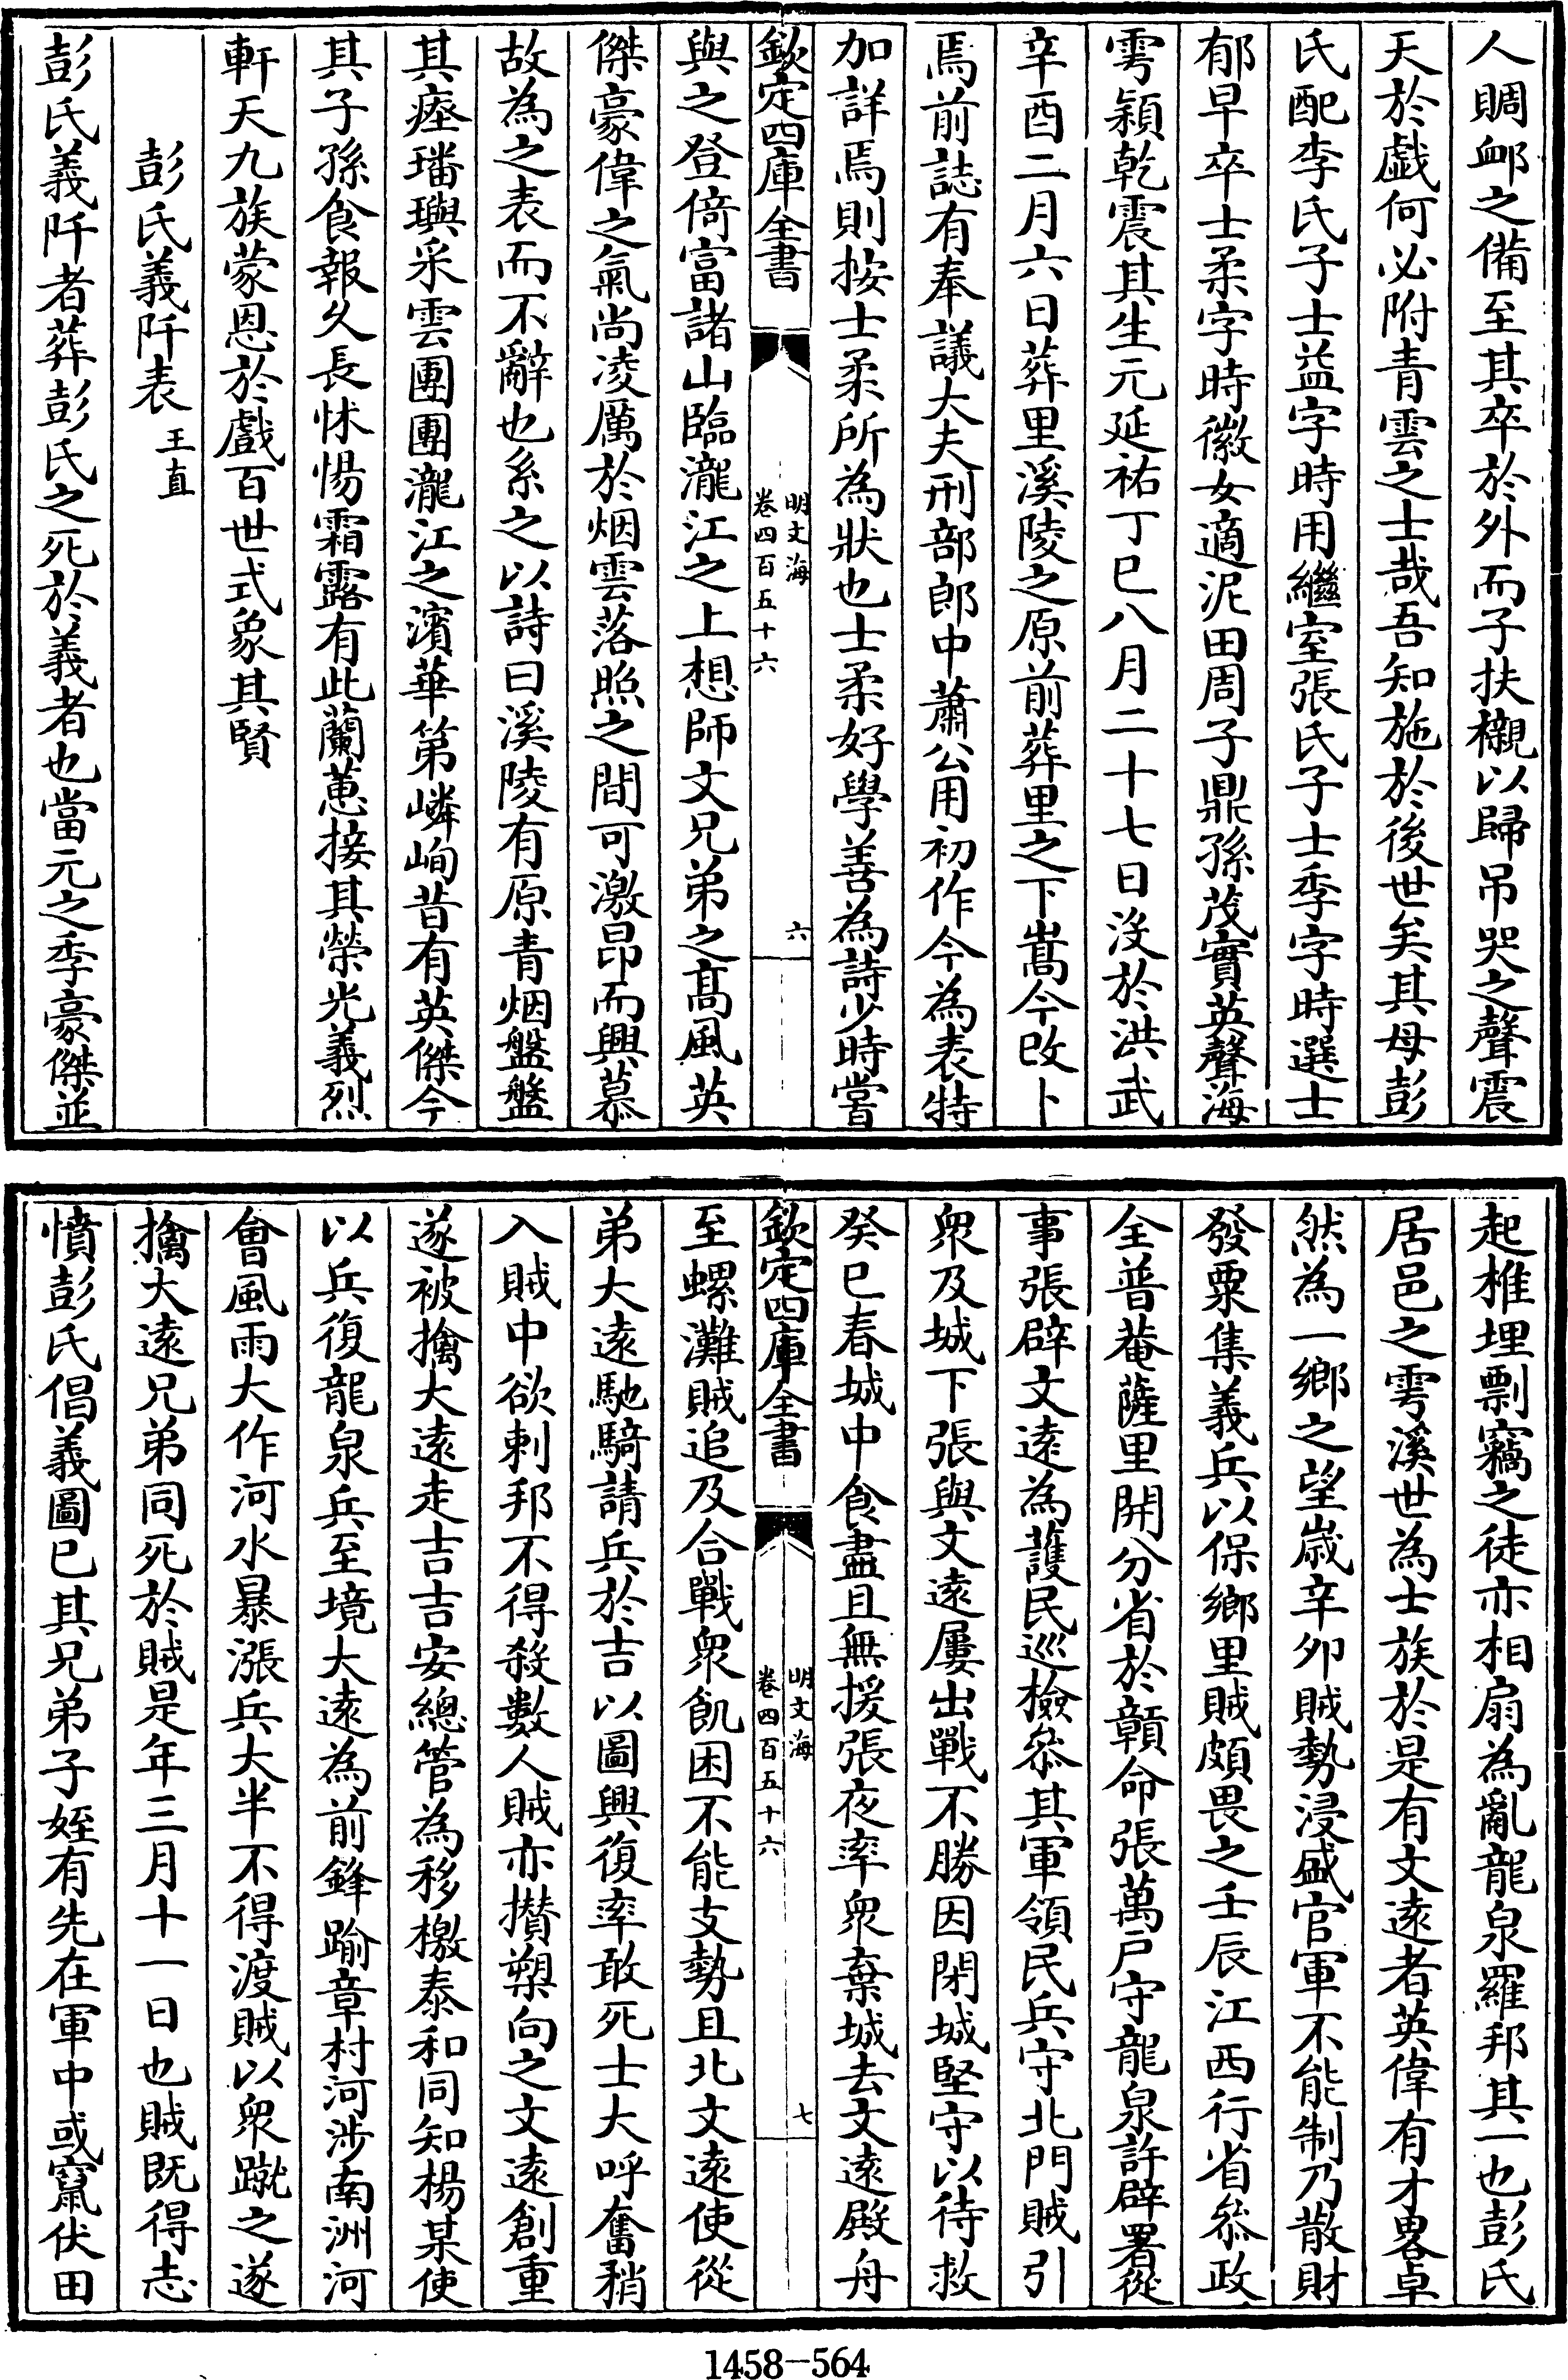 人賙䘏之備至其卒於外而子扶櫬以歸吊哭之聲震
天於戯何必附青雲之士哉吾知施於後世矣其母彭
氏配李氏子士益字時用繼室張氏子士季字時選士
郁早卒士柔字時徽女適泥田周子鼎孫茂實英聲海
雩穎乾震其生元延祐丁巳八月二十七日沒於洪武
辛酉二月六日葬里溪陵之原前葬里之下嵩今改卜
焉前誌有奉議大夫刑部郎中蕭公用初作今為表特
加詳焉則按士柔所為狀也士柔好學善為詩少時嘗
欽定四庫全書
明文海
卷四百五十六
六
與之登倚富諸山臨瀧江之上想師文兄弟之髙風英
傑豪偉之氣尚凌厲於烟雲落照之間可激昂而興慕
故為之表而不辭也系之以詩曰溪陵有原青烟盤盤
其瘞璠璵采雲團團瀧江之濱華第嶙峋昔有英傑今
其子孫食報久長怵惕霜露有此蘭蕙接其榮光義烈
軒天九族蒙恩於戲百世式象其賢
彭氏義阡表 王直
彭氏義阡者葬彭氏之死於義者也當元之季豪傑並
起椎埋剽竊之徒亦相扇為亂龍泉羅邦其一也彭氏
居邑之雩溪世為士族於是有文遠者英偉有才畧卓
然為一鄉之望歳辛夘賊勢浸盛官軍不能制乃散財
發粟集義兵以保鄉里賊頗畏之壬辰江西行省叅政
全普菴薩里開分省於贛命張萬戸守龍泉許辟署從
事張辟文遠為護民巡檢叅其軍領民兵守北門賊引
衆及城下張與文遠屢出戰不勝因閉城堅守以待救
癸巳春城中食盡且無援張夜率衆棄城去文遠殿舟
欽定四庫全書
明文海
卷四百五十六
七
至螺灘賊追及合戰衆飢困不能支勢且北文遠使從
弟大遠馳騎請兵於吉以圖興復率敢死士大呼奮矟
入賊中欲刺邦不得殺數人賊亦攅槊向之文遠創重
遂被擒大遠走吉吉安總管為移檄泰和同知楊某使
以兵復龍泉兵至境大遠為前鋒踰章村河涉南洲河
會風雨大作河水暴漲兵大半不得渡賊以衆蹴之遂
擒大遠兄弟同死於賊是年三月十一日也賊既得志
憤彭氏倡義圖已其兄弟子姪有先在軍中或竄伏田
1458-564